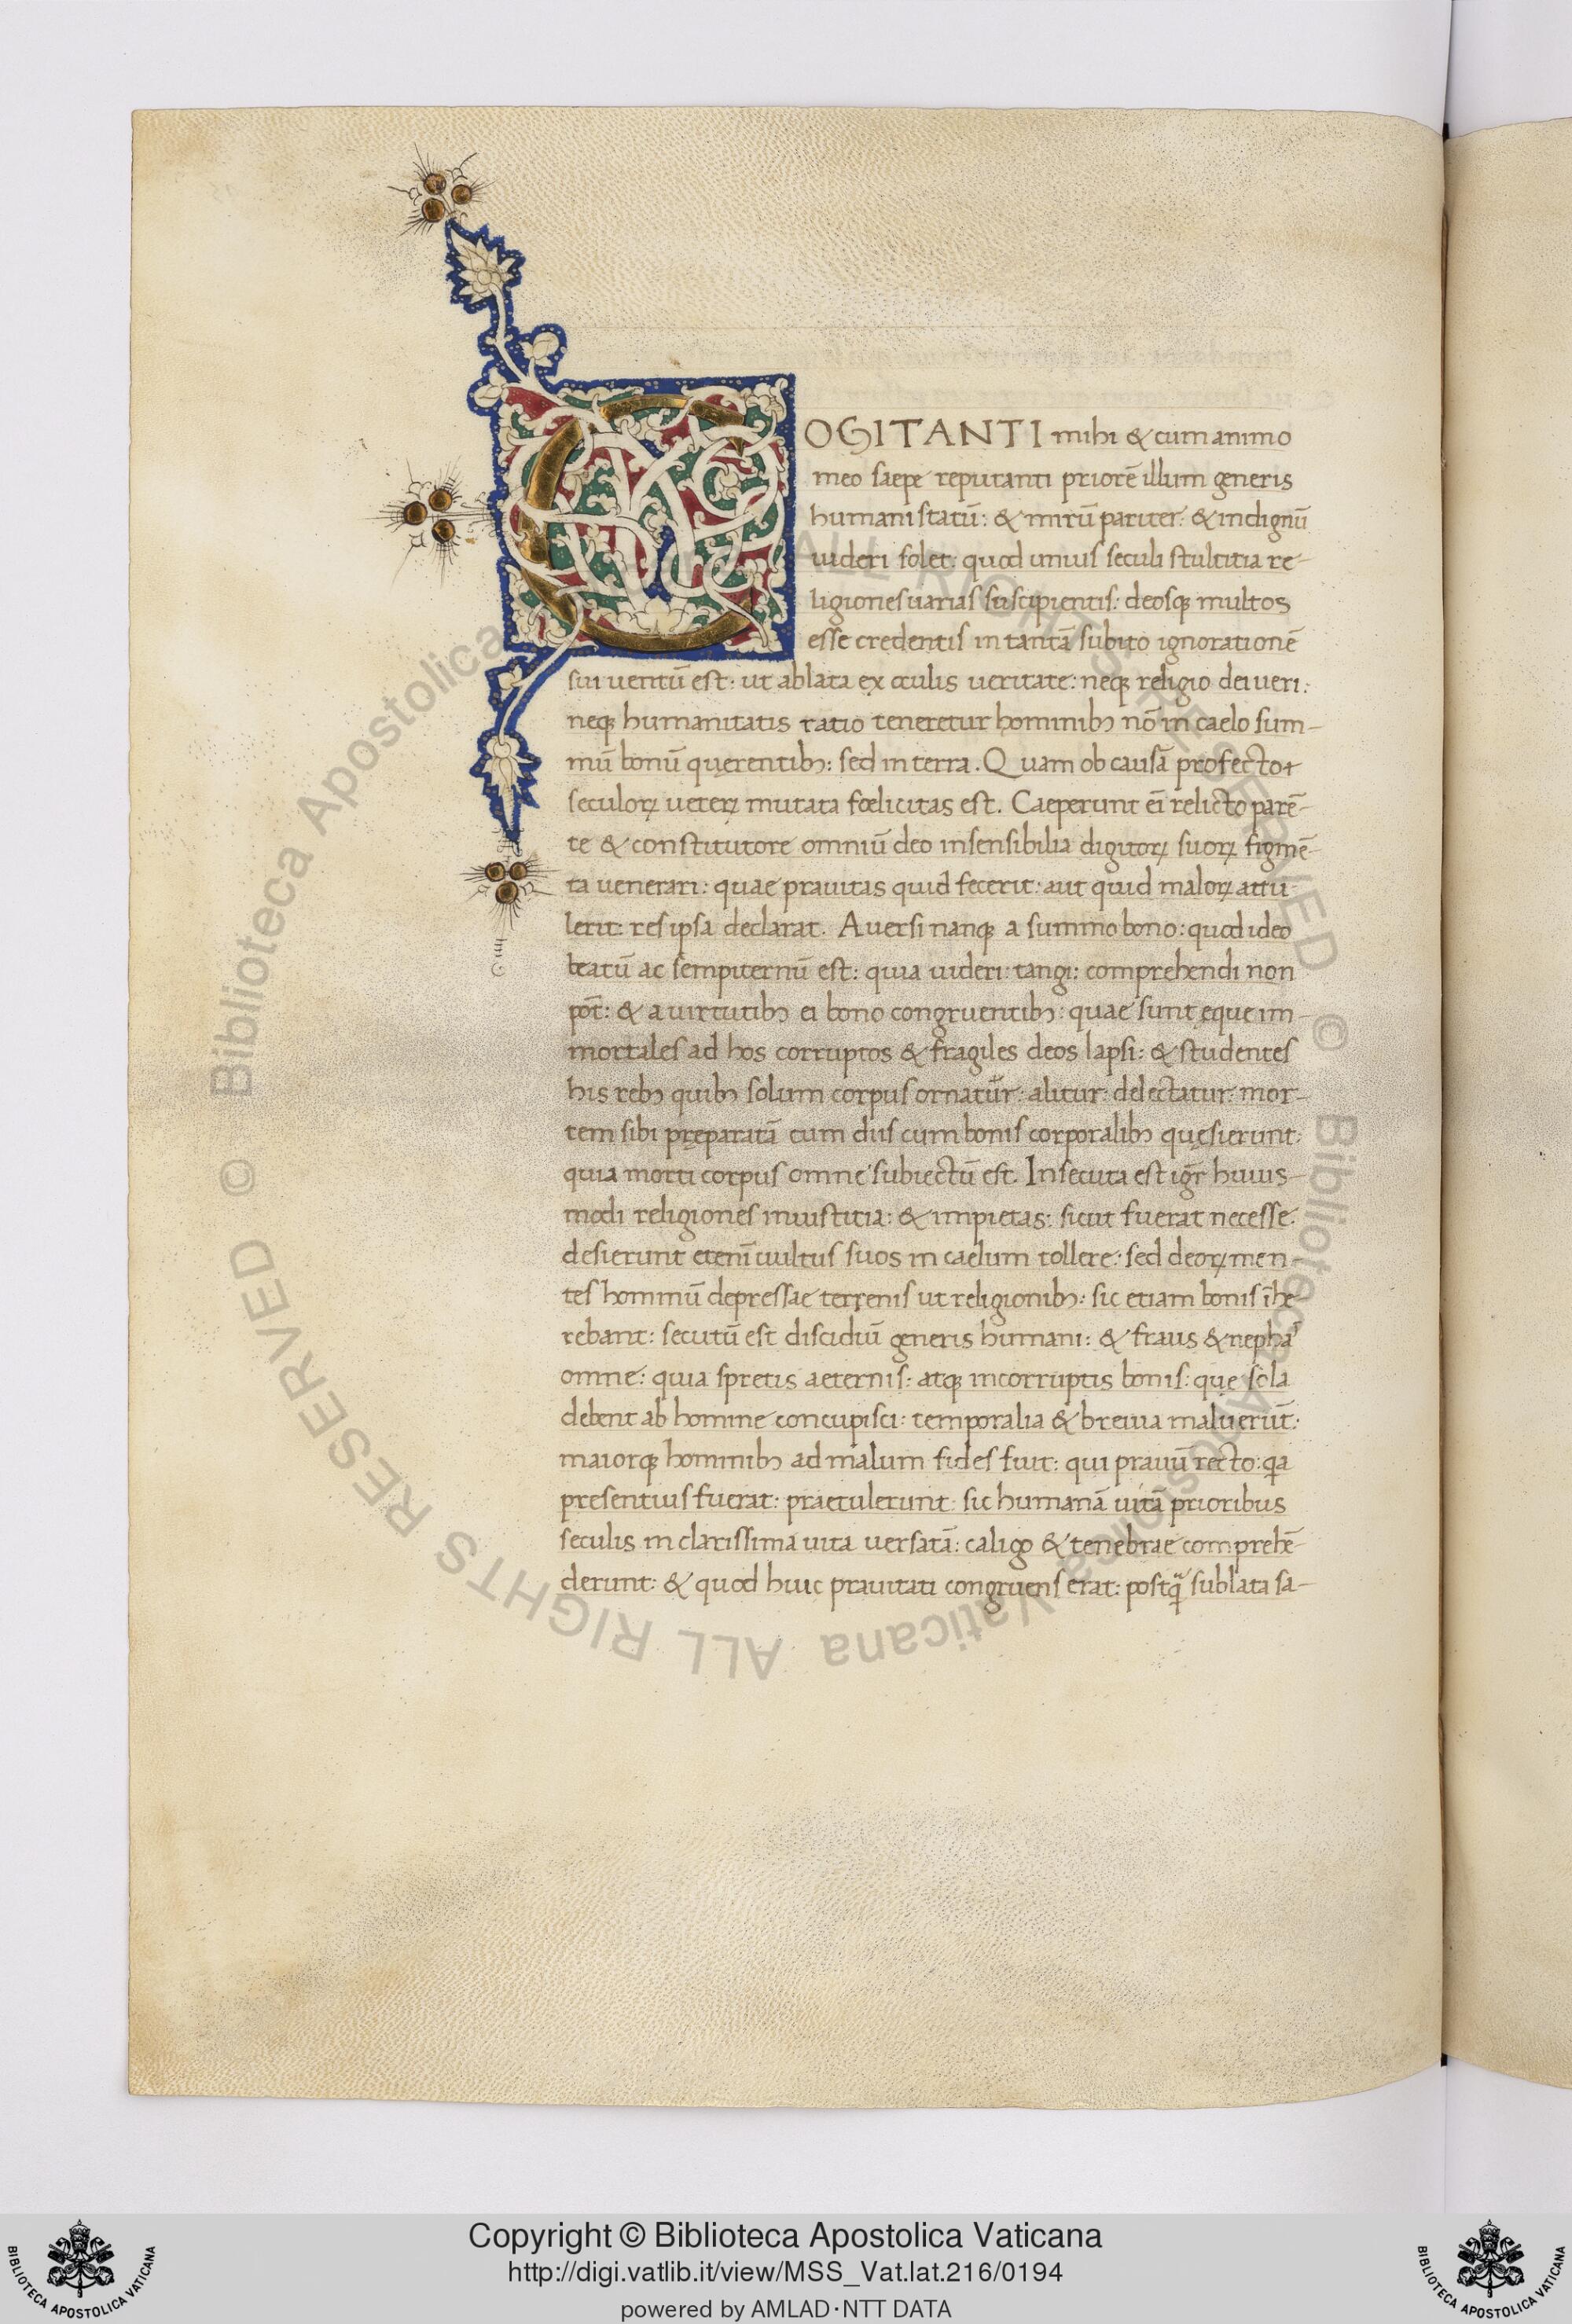 COGITANTI mihi & cum animo
meo saepe reputanti priorē illum generis
humani statū: & mirū pariter: & indignū
uideri solet: quod unius seculi stultitia re-
ligiones uarias suscipientis: deosq; multos
esse credentis in tantā subito ignorationē
sui uentū est: ut ablata ex oculis ueritate: neq; religio dei ueri:
neq; humanitatis ratio teneretur hominib; nō in caelo sum-
mū bonū quęrentib;: sed in terra. Quam ob causā profecto
seculoꝝ ueteꝝ mutata fœlicitas est. Caeperunt eī relicto parē-
te & constitutore omniū deo insensibilia digitoꝝ suoꝝ figmē-
ta uenerari: quae prauitas quid fecerit: aut quid maloꝝ attu-
lerit: res ipsa declarat. Auersi nanq; a summo bono: quod ideo
beatū ac sempiternū est: quia uideri: tangi: comprehendi non
pōt: & a uirtutib; ei bono congruentib;: quae sunt ęque im-
mortales ad hos corruptos & fragiles deos lapsi: & studentes
his reb; quib; solum corpus ornatur: alitur: delectatur: mor-
tem sibi pręparatā cum diis cum bonis corporalib; quęsierunt:
quia morti corpus omne subiectū est. Insecuta est igr̄ huius-
modi religiones iniustitia: & impietas: sicut fuerat necesse.
desierunt etenī uultus suos in caelum tollere: sed deoꝝ men-
tes hominū depressae terrenis ut religionib;: sic etiam bonis īhe-
rebant: secutū est discidiū generis humani: & fraus & nephas
omne: quia spretis aeternis: atq; incorruptis bonis: que sola
debent ab homine concupisci: temporalia & breuia maluerūt:
maiorq; hominib; ad malum fides fuit: qui prauū recto: qa
presentius fuerat: praetulerunt: sic humanā uitā prioribus
seculis in clarissima uita uersatā: caligo & tenebrae comprehē-
derunt: & quod huic prauitati congruens erat: postq̄ sublata sa-
© Biblioteca Apostolica Vaticana ALL RIGHTS RESERVED © Biblioteca Apostolica Vaticana ALL RIGHTS RESERVED
BIBLIOTECA APOSTOLICA VATICANA
Copyright © Biblioteca Apostolica Vaticana
http://digi.vatlib.it/view/MSS_Vat.lat.216/0194
powered by AMLAD·NTT DATA
BIBLIOTECA APOSTOLICA VATICANA